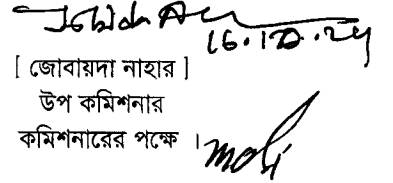 16.10.24
[ জোবায়দা নাহার ]
উপ কমিশনার
কমিশনারের পক্ষে ।